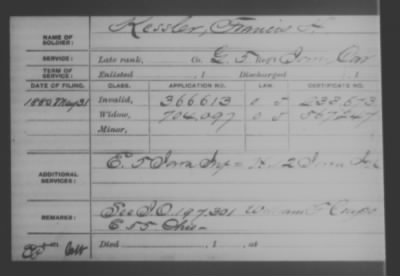 NAME OF SOLDIER: Kessler, Francis
SERVICE: Late rank, Co. G. 5 Reg't Iowa Cav
TERM OF SERVICE: Enlisted , 1 Discharged , 1
DATE OF FILING. CLASS. APPLICATION NO. LAW. CERTIFICATE NO.
1880 May 31 Invalid, 366.613 233.573
Widow, 704.097 567247
Minor,
ADDITIONAL SERVICES: E. 5 Iowa Inf = 2 Iowa Inf
REMARKS: See 197.301
E 55
Died , 1 , at